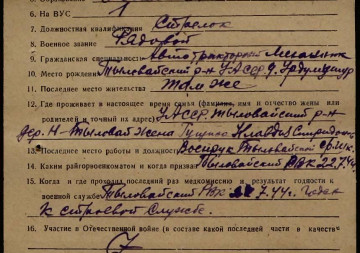 На ВУС 1
7. Должностная квалификация Стрелок
8. Военное звание Рядовой
9. Гражданская специальность Автотракторный Механик
10. Место рождения Тыловайский р-н УАССР д.
11. Последнее место жительства Там же
12. Где проживает в настоящее время семья (фамилия, имя и отчество жены или
родителей и точный их адрес) УАССР. Тыловайский р-н
дер. Н-Тыловай жена Клавдия
13. Последнее место работы и должность Тыловайский
14. Каким райгорвоенкоматом и когда призван Тыловайский РВК 22.7.44
15. Когда и где проходил последний раз медкомиссию и результат годности к
военной службе Тыловайский РВК 7.44г. Годен
к строевой службе.
16. Участие в Отечественной войне (в составе какой последней части и в качестве